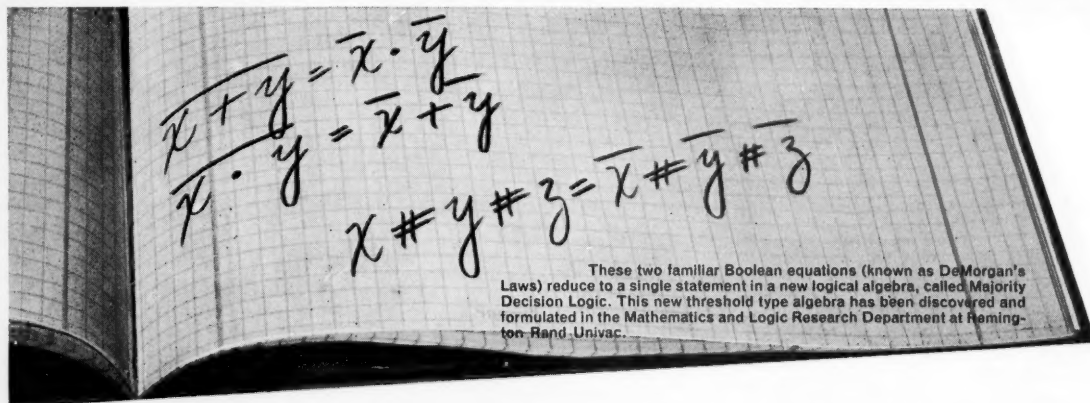 x̅ ̅+̅ ̅y̅ = x̅ · y̅
x̅ ̅·̅ ̅y̅ = x̅ + y̅
x # y # z = x̅ # y̅ # z̅
These two familiar Boolean equations (known as DeMorgan's
Laws) reduce to a single statement in a new logical algebra, called Majority
Decision Logic. This new threshold type algebra has been discovered and
formulated in the Mathematics and Logic Research Department at Reming-
ton Rand Univac.